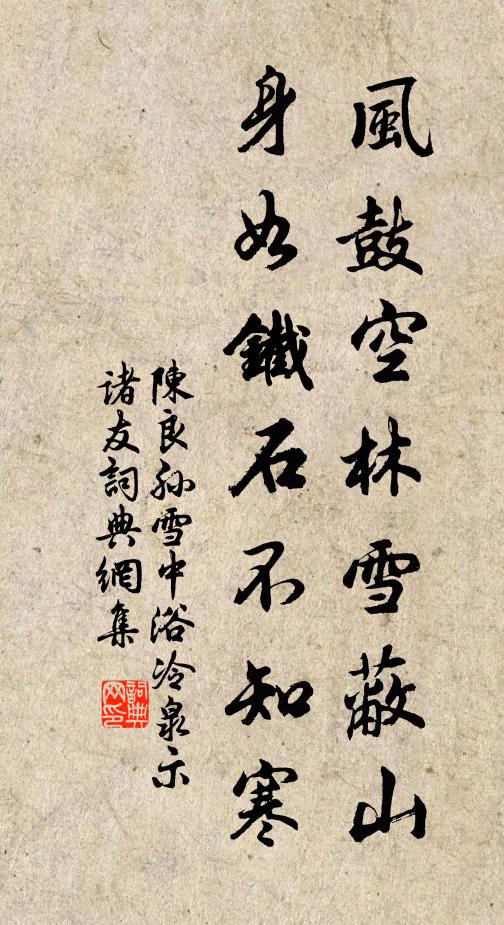 風鼓空林雪蔽山
身如鐵石不知寒
陳良孫雪中浴冷泉示
諸友詞典網集
詞典網印